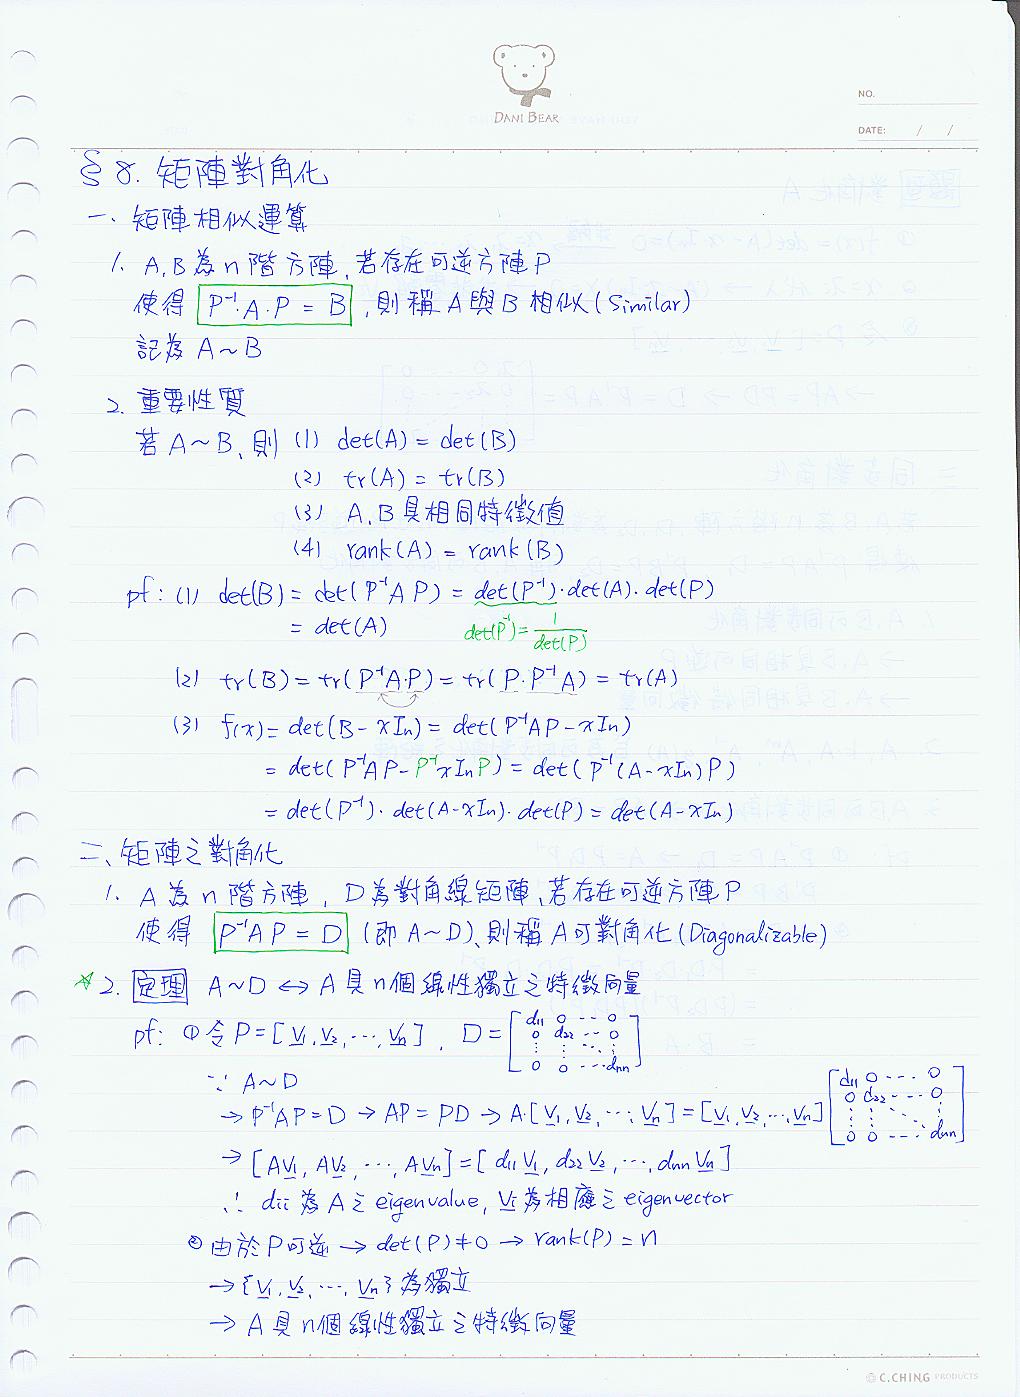 DANI BEAR
NO.
DATE: / /
§ 8. 矩陣對角化
一. 矩陣相似運算
1. A,B為n階方陣,若存在可逆方陣P
使得 P⁻¹·A·P = B ,則稱A與B相似(Similar)
記為 A~B
2. 重要性質
若A~B、則 (1) det(A) = det(B)
(2) tr(A) = tr(B)
(3) A,B具相同特徵值
(4) rank(A) = rank(B)
pf: (1) det(B) = det(P⁻¹AP) = det(P⁻¹)·det(A)·det(P)
= det(A) det(P⁻¹) = 1/det(P)
(2) tr(B) = tr(P⁻¹A·P) = tr(P·P⁻¹A) = tr(A)
(3) f(x) = det(B-xIn) = det(P⁻¹AP-xIn)
= det(P⁻¹AP-P⁻¹xInP) = det(P⁻¹(A-xIn)P)
= det(P⁻¹)·det(A-xIn)·det(P) = det(A-xIn)
二、矩陣之對角化
1. A為n階方陣, D為對角線矩陣,若存在可逆方陣P
使得 P⁻¹AP = D (即A~D)、則稱A可對角化(Diagonalizable)
☆2. 定理 A~D ↔ A具n個線性獨立之特徵向量
pf: ① 令P=[V1,V2,…,Vn], D=[d11 0 --- 0
0 d22 --- 0
⋮ ⋮ ⋱ ⋮
0 0 ---dnn]
∵ A~D
→ P⁻¹AP=D → AP=PD → A·[V1,V2,…,Vn]=[V1,V2,…,Vn][d11 0 ---- 0
0 d22 --- 0
⋮ ⋮ ⋱ ⋮
0 0 --- dnn]
→ [AV1, AV2, …, AVn]=[d11V1, d22V2, …, dnnVn]
∴ dii 為A之eigenvalue, Vi為相應之eigenvector
② 由於P可逆 → det(P)≠0 → rank(P)=n
→ {V1,V2,…,Vn}為獨立
→ A具n個線性獨立之特徵向量
© C.CHING PRODUCTS